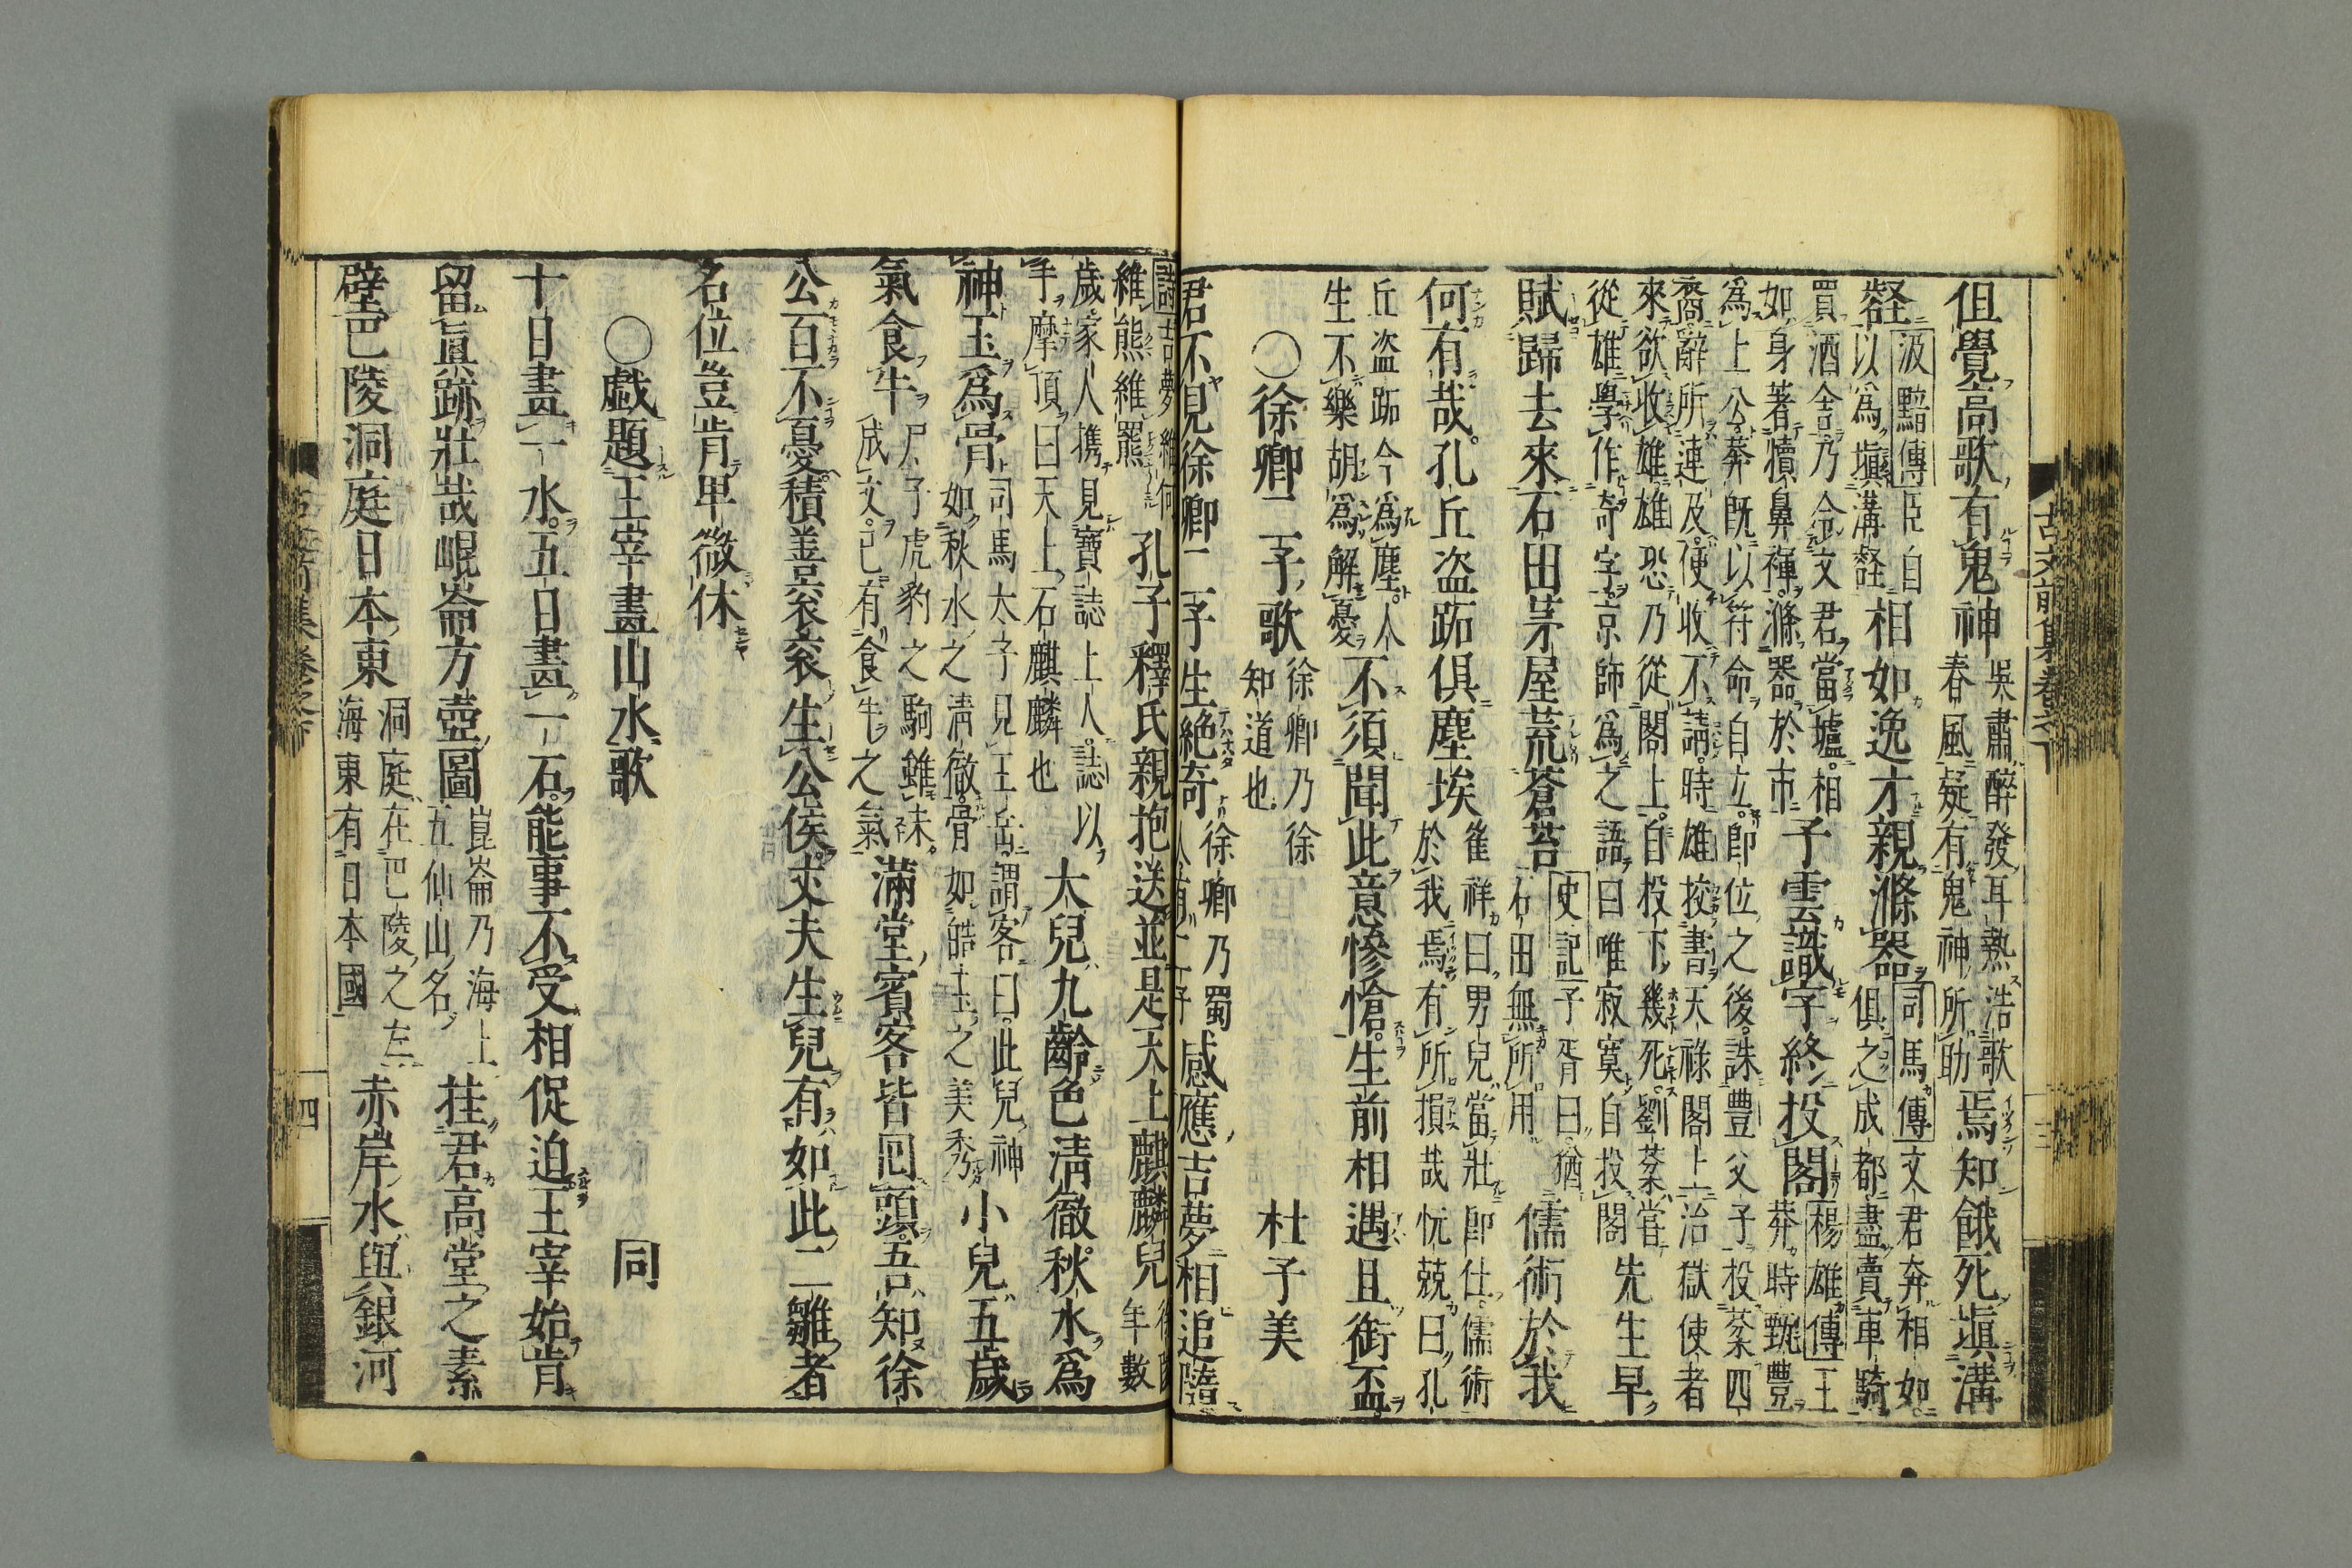 但覺高歌有鬼神吳肅醉發耳熱浩歌春風疑有鬼神所助焉知餓死塡溝
壑汲黯傳臣自以爲塡溝壑相如逸才親滌器司馬傳文君奔相如俱之成都盡賣車騎
買酒舍乃令文君當壚相如身著犢鼻褌滌器於市子雲識字終投閣楊雄傳王莽時甄豐
爲上公莽既以符命自立卽位之後誅豐父子投棻四裔辭所連及便收不請時雄挍書天祿閣上治獄使者
來欲收雄雄恐乃從閣上自投下幾死劉棻嘗從雄學作奇字京師爲之語曰唯寂寞自投閣先生早
賦歸去來石田茅屋荒蒼苔史記子胥曰猶石田無所用儒術於我
何有哉孔丘盗跖俱塵埃崔祥曰男兒當壯卽仕儒術於我焉有所損哉忼兢曰孔
丘盗跖今爲塵人生不樂胡爲解憂不須聞此意慘愴生前相遇且銜盃
〇徐卿二子歌徐卿乃徐知道也杜子美
君不見徐卿二子生絶奇徐卿乃蜀人有二子感應吉夢相追隨
詩吉夢維何維熊維羆孔子釋氏親抱送並是天上麒麟兒徐陵年數
歲家人携見寶誌上人誌以手摩頂曰天上石麒麟也大兒九齡色淸徹秋水爲
神玉爲骨司馬太子見王岳謂客曰此兒神如秋水之淸徹骨如皓玉之美秀小兒五歲
氣食牛尸子虎豹之駒雖未成文已有食牛之氣滿堂賓客皆囘頭吾知徐
公百不憂積善衮衮生公侯丈夫生兒有如此二雛者
名位豈肯卑微休
〇戯題王宰畫山水歌同
十日畫一水五日畫一石能事不受相促迫王宰始肯
留眞跡壯哉崐崙方壺圖崑崙乃海上五仙山名挂君高堂之素
壁巴陵洞庭日本東洞庭在巴陵之左海東有日本國赤岸水與銀河
古文前集卷之下
四